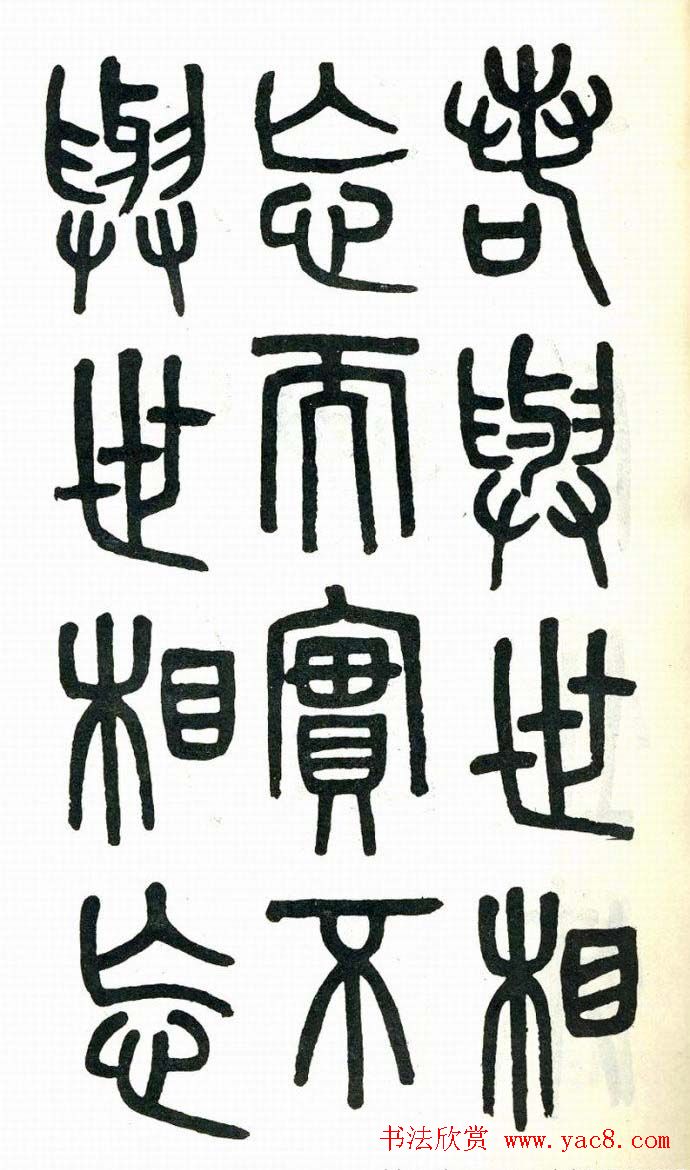 若與世相
忘而實不
與世相忘
书法欣赏 www.yac8.com